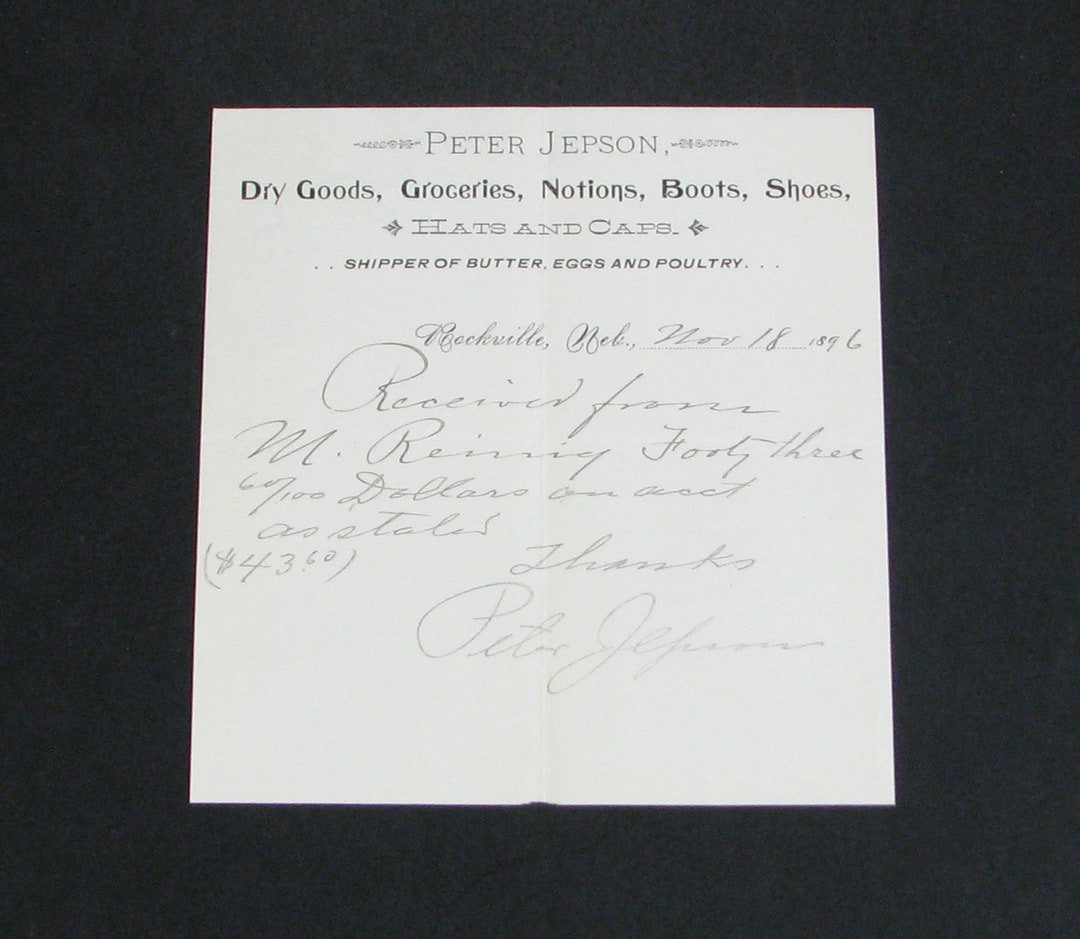 PETER JEPSON,
Dry Goods, Groceries, Notions, Boots, Shoes,
HATS AND CAPS.
. . SHIPPER OF BUTTER, EGGS AND POULTRY. . .
Rockville, Neb., Nov 18 1896
Received from
M. Reinig Forty three
60/100 Dollars on acct
as stated
($43.60) Thanks
Peter Jepson